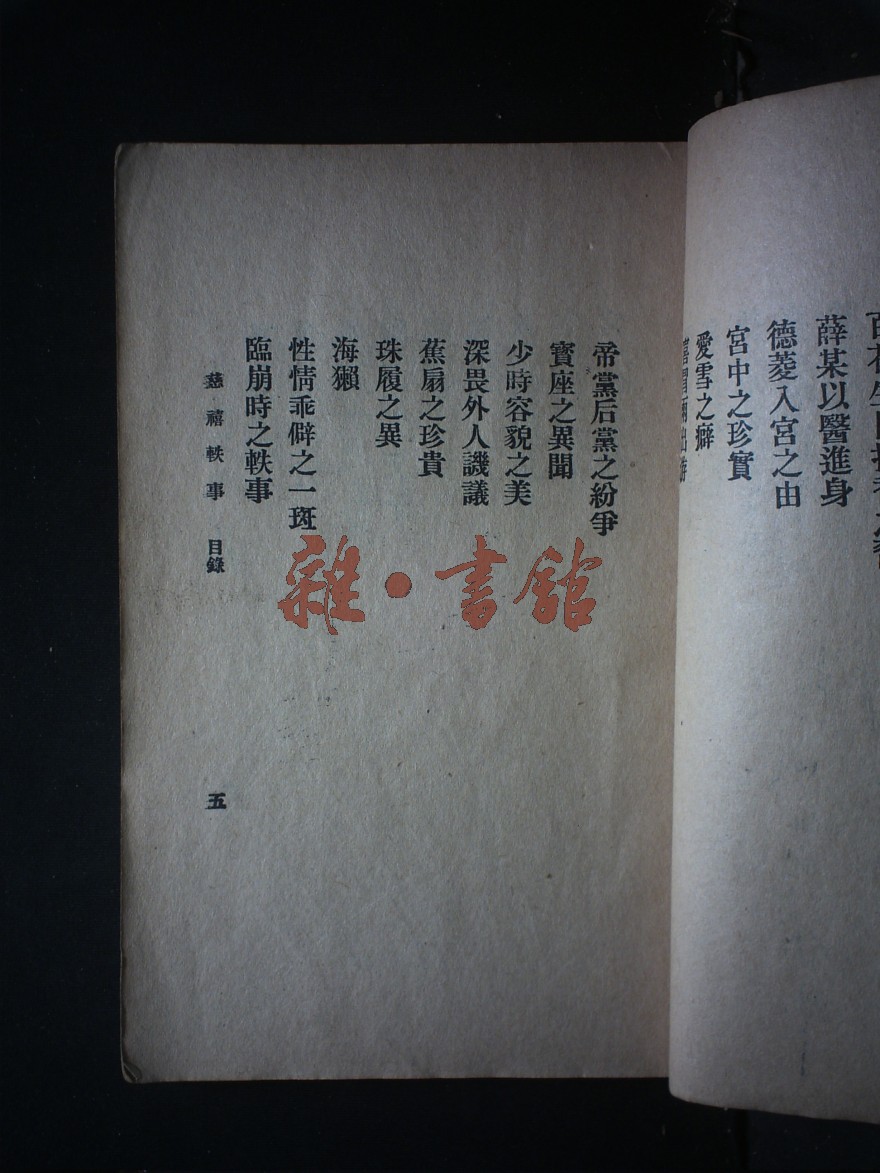 薛某以醫進身
德菱入宮之由
宮中之珍實
愛雪之癖
帝黨后黨之紛爭
寳座之異聞
少時容貌之美
深畏外人譏議
蕉扇之珍貴
珠履之異
海獺
性情乖僻之一斑
臨崩時之軼事
慈禧軼事 目錄
五
雜·書館